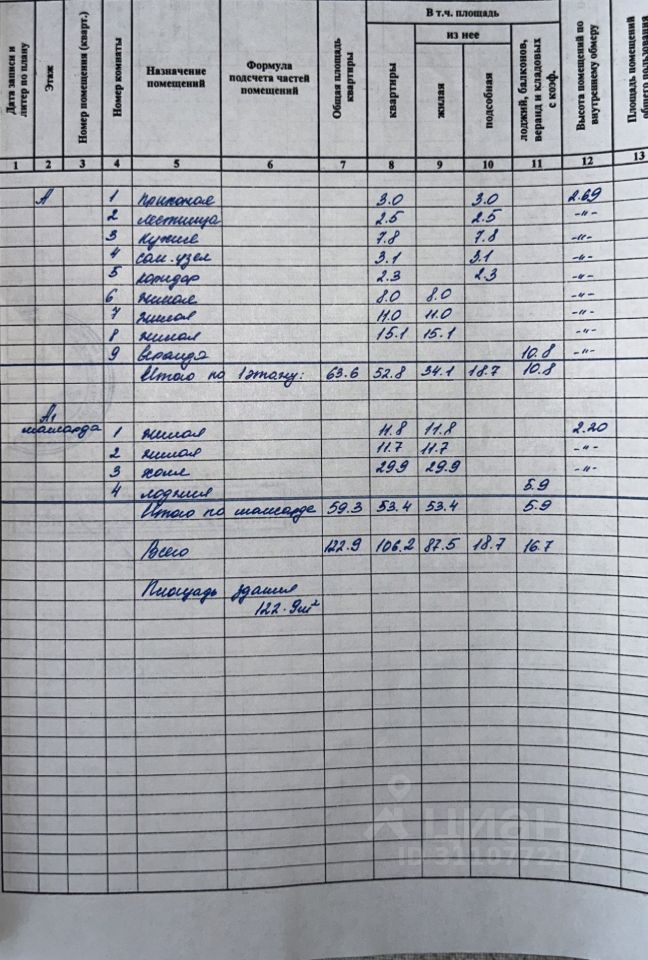 Дата записи и литер по плану
Этаж
Номер помещения (кварт.)
Номер комнаты
Назначение помещений
Формула подсчета частей помещений
Общая площадь квартиры
В т.ч. площадь
из нее
квартиры
жилая
подсобная
лоджий, балконов, веранд и кладовых с коэф.
Высота помещений по внутреннему обмеру
Площадь помещений общего пользования
1 2 3 4 5 6 7 8 9 10 11 12 13
А 1 прихожая 3.0 3.0 2.69
2 лестница 2.5 2.5 -"-
3 кухня 7.8 7.8 -"-
4 сан.узел 3.1 3.1 -"-
5 коридор 2.3 2.3 -"-
6 жилая 8.0 8.0 -"-
7 жилая 11.0 11.0 -"-
8 жилая 15.1 15.1 -"-
9 веранда 10.8 -"-
Итого по 1 этажу: 63.6 52.8 34.1 18.7 10.8
А1
мансарда 1 жилая 11.8 11.8 2.20
2 жилая 11.7 11.7 -"-
3 холл 29.9 29.9 -"-
4 лоджия 5.9
Итого по мансарде 59.3 53.4 53.4 5.9
Всего 122.9 106.2 87.5 18.7 16.7
Площадь здания
122.9м²
циан
ID 311077217